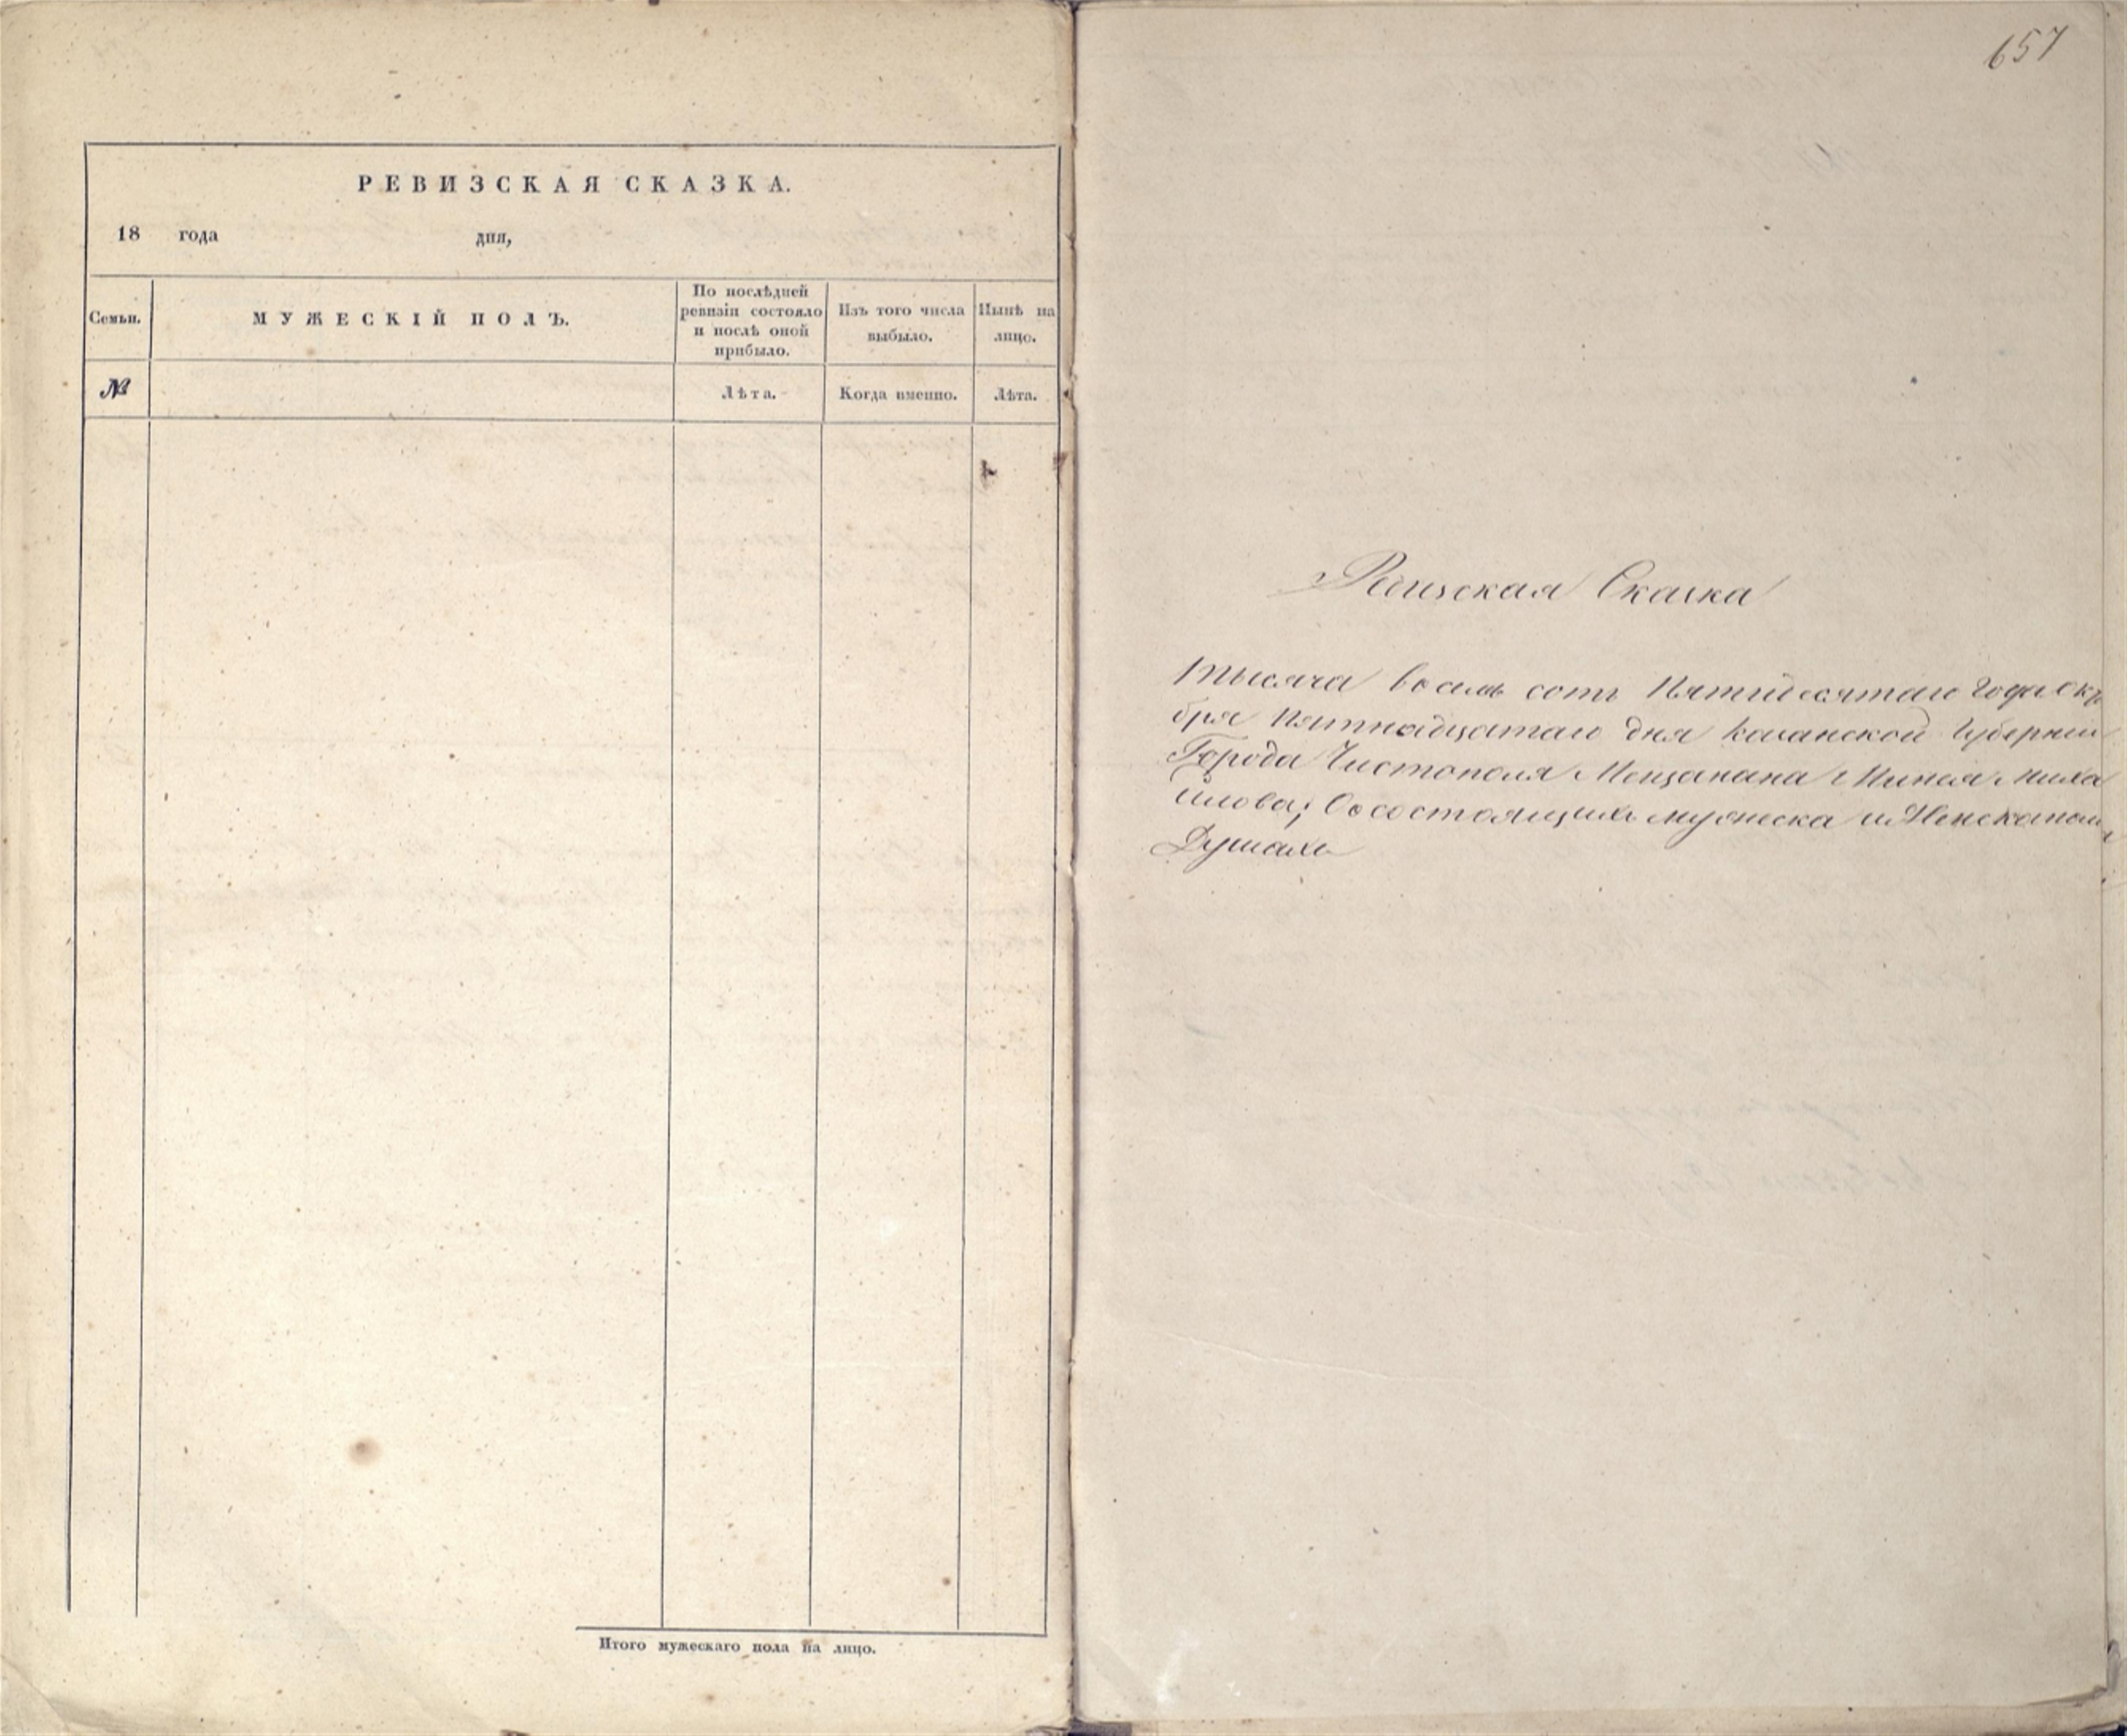 РЕВИЗСКАЯ СКАЗКА.
18 года дня,
Семьи.
МУЖЕСКІЙ ПОЛЪ.
По послѣдней
ревизіи состояло
и послѣ оной
прибыло.
Изъ того числа
выбыло.
Нынѣ на
лицо.
№
Лѣта.
Когда именно.
Лѣта.
Итого мужескаго пола на лицо.
657
Ревизская Сказка
Тысяча восемь сотъ Пятидесятаго Года Октя
бря Пятнадцатаго дня Казанской Губерніи
Города Чистополя Мещанина Миха
йлова; О состоящихъ мужеска и Женска пола
Душахъ